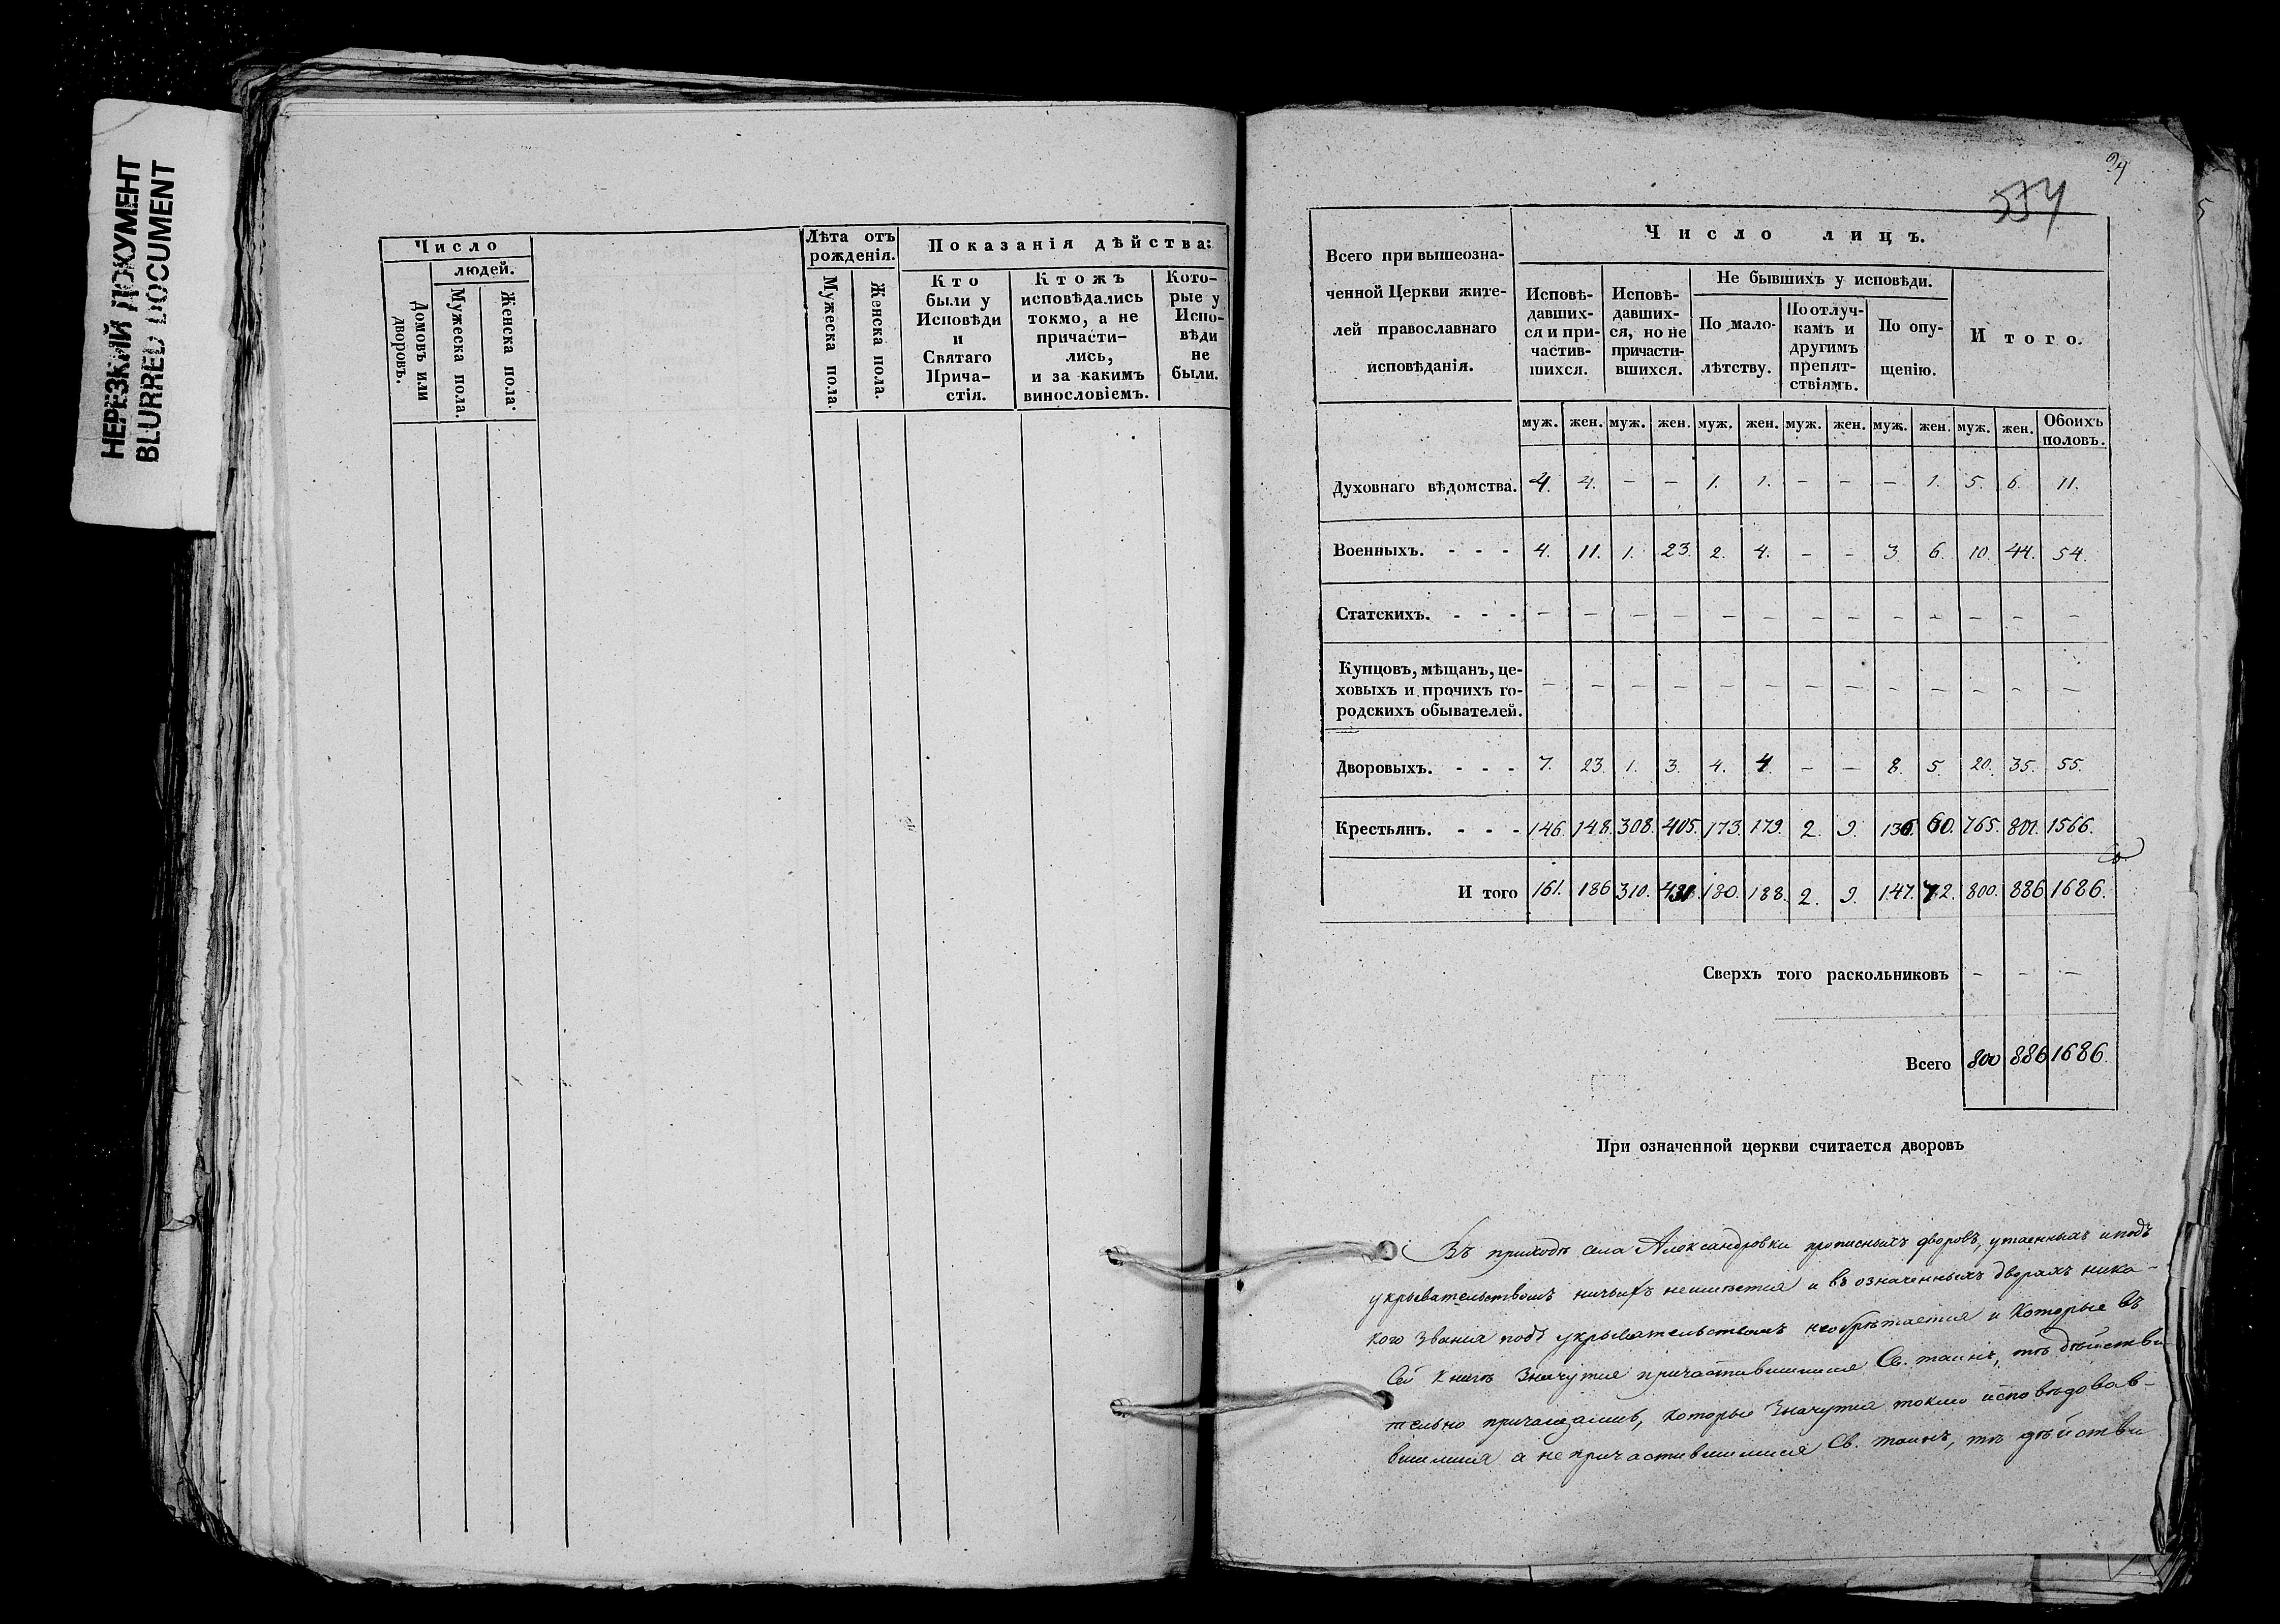 НЕРЕЗКИЙ ДОКУМЕНТ
BLURRED DOCUMENT
Число
людей.
Домовъ или дворовъ.
Мужеска пола.
Женска пола.
Лѣта отъ рожденія.
Мужеска пола.
Женска пола.
Показанія дѣйства:
Кто были у Исповѣди и Святаго Прича-стія.
Ктожъ исповѣдались токмо, а не причасти-лись, и за какимъ винословіемъ.
Кото-рые у Испо-вѣди не были.
534
Всего при вышеозна-
ченной Церкви жите-
лей православнаго
исповѣданія.
Число лицъ.
Исповѣ-давших-ся и при-частив-шихся.
Исповѣ-давших-ся, но не причасти-вшихся.
Не бывшихъ у исповѣди.
По мало-лѣтству.
По отлуч-камъ и другимъ препят-ствіямъ.
По опу-щенію.
Итого.
муж. жен. муж. жен. муж. жен. муж. жен. муж. жен. муж. жен. Обоихъ половъ.
Духовнаго вѣдомства. 4. 4. — — 1. 1. — — — 1. 5. 6. 11.
Военныхъ. - - - 4. 11. 1. 23. 2. 4. — — 3 6. 10. 44. 54.
Статскихъ. - - - — — — — — — — — — — — — —
Купцовъ, мѣщанъ, це-
ховыхъ и прочихъ го-
родскихъ обывателей. — — — — — — — — — — — — —
Дворовыхъ. - - - 7. 23. 1. 3. 4. 4. — — 8. 5. 20. 35. 55.
Крестьянъ. - - - 146. 148. 308. 405. 173. 179. 2. 9. 136. 60. 765. 801. 1566.
И того 161. 186 310. 431. 180. 188. 2. 9. 147. 72. 800. 886 1686.
Сверхъ того раскольниковъ — — —
Всего 800 886 1686.
При означенной церкви считается дворовъ
Въ приходѣ села Александровки прописныхъ дворовъ, утаенныхъ и подъ
укрывательствомъ ничьихъ неимѣется и въ означенныхъ дворахъ ника-
кого званія подъ укрывательствомъ необрѣтается и которые въ
сей книгѣ значутся причастившимися Св. таинъ, тѣ дѣйстви-
тельно причащались, которые значутся токмо исповѣдовав-
вшимися а непричастившимися Св. таинъ, тѣ дѣйстви